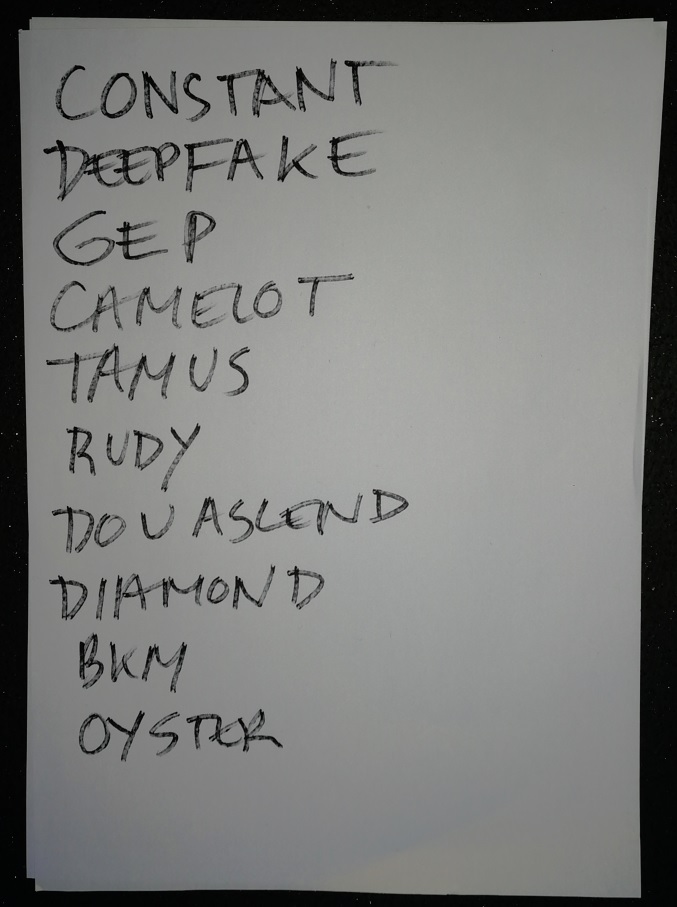 CONSTANT
DEEPFAKE
GEP
CAMELOT
TAMUS
RUDY
DOU ASCEND
DIAMOND
BKM
OYSTER